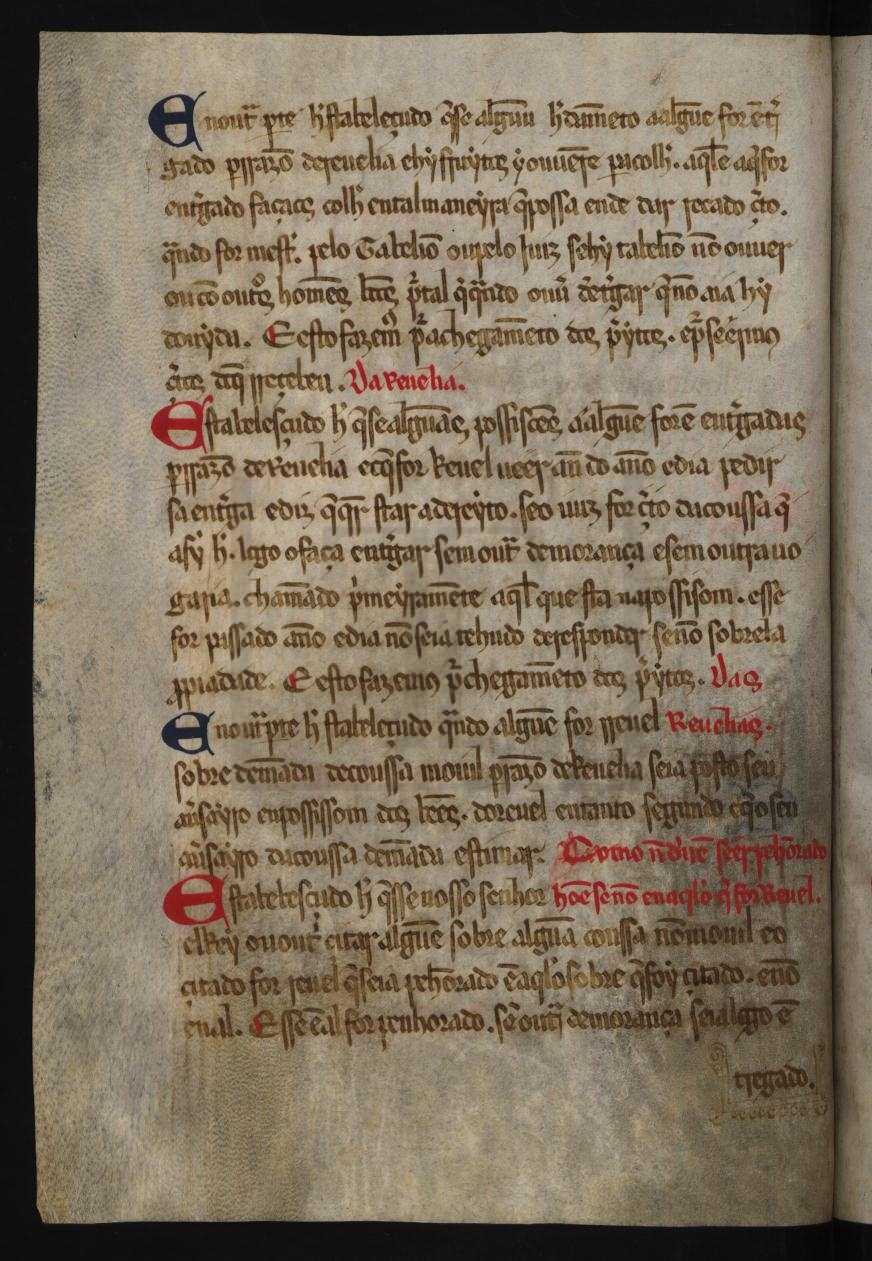 Enout̃ ꝑte h̃ stabeleçudo q̃se algũu h̃dam̃eto aalgũe for ẽtr̃
gado ꝑrrazõ dereuelia ehy ffruytos y ouuerẽ pacolh̃. aq̃le aq̃ for
entr̃gado façaos colh̃ entalmaneyra q̃possa ende dar recado c̃to.
q̃ndo for mest̃. pelo Tabeliõ oupelo Juiz sehy tabeliõ nõ ouuer
oucõ outos homẽes bõos p̃tal q̃ q̃ndo ouũ dẽtr̃gar q̃ nõ aia hy
douida. E esto fazem̃ p̃ achegam̃eto dos p̃ytos. ep̃seermos
c̃tos do q̃ rreçebeu. Da Reuelia.
Estabelesçudo h̃ q̃sealgũas possisões aalgũe forẽ entr̃gadas
ꝑrrazõ deReuelia eoq̃ for Reuel ueer ãn do ãno edia pedir
sa entr̃ga ediz q̃ q̃r star adereyto. seo iuiz for c̃to dacoussa q̃
assy h̃. logo ofaça entr̃gar sem out̃ demorança esem outra uo
garia. cham̃ado p̃meyram̃ete aq̃l que sta napossissom. esse
for passado ãno edia nõ seia tehudo deresponder senõ sobrela
ꝓpiadade. E esto fazemos p̃chegam̃eto dos p̃ytos. Das
Enout̃ꝑte h̃ stabeleçudo q̃ndo algũe for rreuel Reuelias.
sobre dem̃ada decoussa mouil ꝑrrazõ deReuelia seia posto seu
aũssayro enpossissom dos bẽes. doreuel entanto segundo eq̃ oseu
aũssayro dacoussa dem̃ada estimar. Como nõ deuẽ seer pehorado
Estabelesçudo h̃ q̃sse nosso senhor hõe senõ enaq̃lo q̃ for Reuel.
elRey ou out̃ citar algũe sobre algũa coussa nõ mouil eo
çitado for reuel q̃seia pehorado ẽ aq̃lo sobre q̃ foy çitado. enõ
enal. E sse ẽ al for penhorado. sẽ outr̃ demorança seia logo ẽ
tregado.